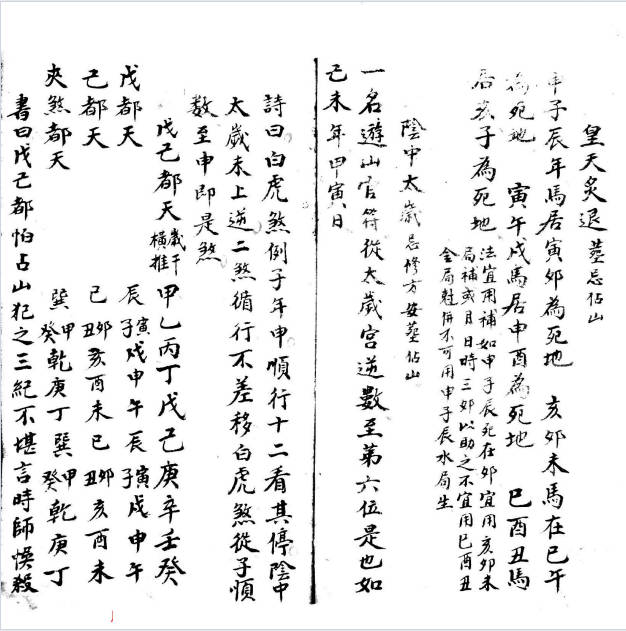 皇天炙退 葬忌占山
申子辰年馬居寅卯為死地 亥卯未馬在巳午
為死地 寅午戌馬居申酉為死地 巳酉丑馬
居亥子為死地 法宜用補如申子辰死在卯宜用亥卯未
局補或月日時三卯以助之不宜用巳酉丑
金局尅併不可用申子辰水局生
陰中太歲忌修方安葬佔山
一名遊山官符從太歲宮逆數至第六位是也如
己未年甲寅日
詩曰白虎煞例子年申順行十二看其停陰中
太歲未上逆二煞循行不差移白虎煞從子順
數至申即是煞
戊己都天 歲干橫推 甲乙丙丁戊己庚辛壬癸
戊都天 辰 寅子 戌申午辰 寅子 戌申午
己都天 巳 卯丑 亥酉未巳 卯丑 亥酉未
夾煞都天 巽 甲癸 乾庚丁巽 甲癸 乾庚丁
書曰戊己都怕占山犯之三紀不堪言時師悞殺